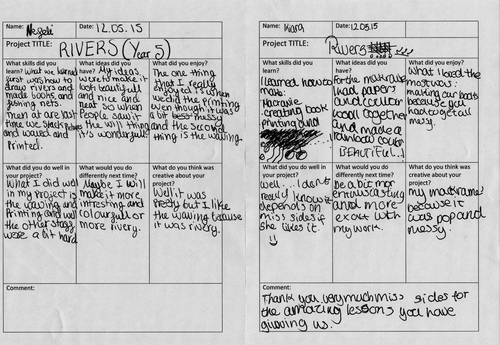 Name: Nefeli
Date: 12.05.15
Project TITLE: RIVERS (Year 5)
What skills did you learn?
What we learned
first was how to
draw rivers and
made books, and
fishing nets.
Then at are last
time we stack pictures
and waved and
Printed.
What ideas did you have?
My ideas
were to make it
look beautifull
and nice and
neat so when
People saw it
the will thing
it's wonderfull.
What did you enjoy?
The one thing
that I really
enjoyed is when
we did the printing
even though it was
a bit messy
and the second
thing is the waving.
What did you do well in your project?
What I did well
in my project is
the waving and
Printing and well
the other stagy
were a bit hard
What would you do differently next time?
Maybe I will
make it more
intresting and
colourfull or
more rivery.
What do you think was creative about your project?
Well it was
Pretty but I like
the waving because
it was rivery.
Comment:
Name: Kiara
Date: 12.05.15
Project TITLE: Rivers
What skills did you learn?
I learned how to
make:
Macrame
creating book
printing build
What ideas did you have?
For the matrame
I had papers
and colour
wool together
and made a
rainbow cover
BEAUTIFUL..!
What did you enjoy?
What I loved the
most was:
making our boats
because you
had to get all
messy.
What did you do well in your project?
Well.. I don't
really know it
depends on
miss sides if
she likes it.
What would you do differently next time?
Be a bit mor
enthusiasting
and more
exact with
my work.
What do you think was creative about your project?
my matrame
because it
was pop and
messy.
Comment:
Thank you very much miss sides for
the amazing lessons you have
giveing us.